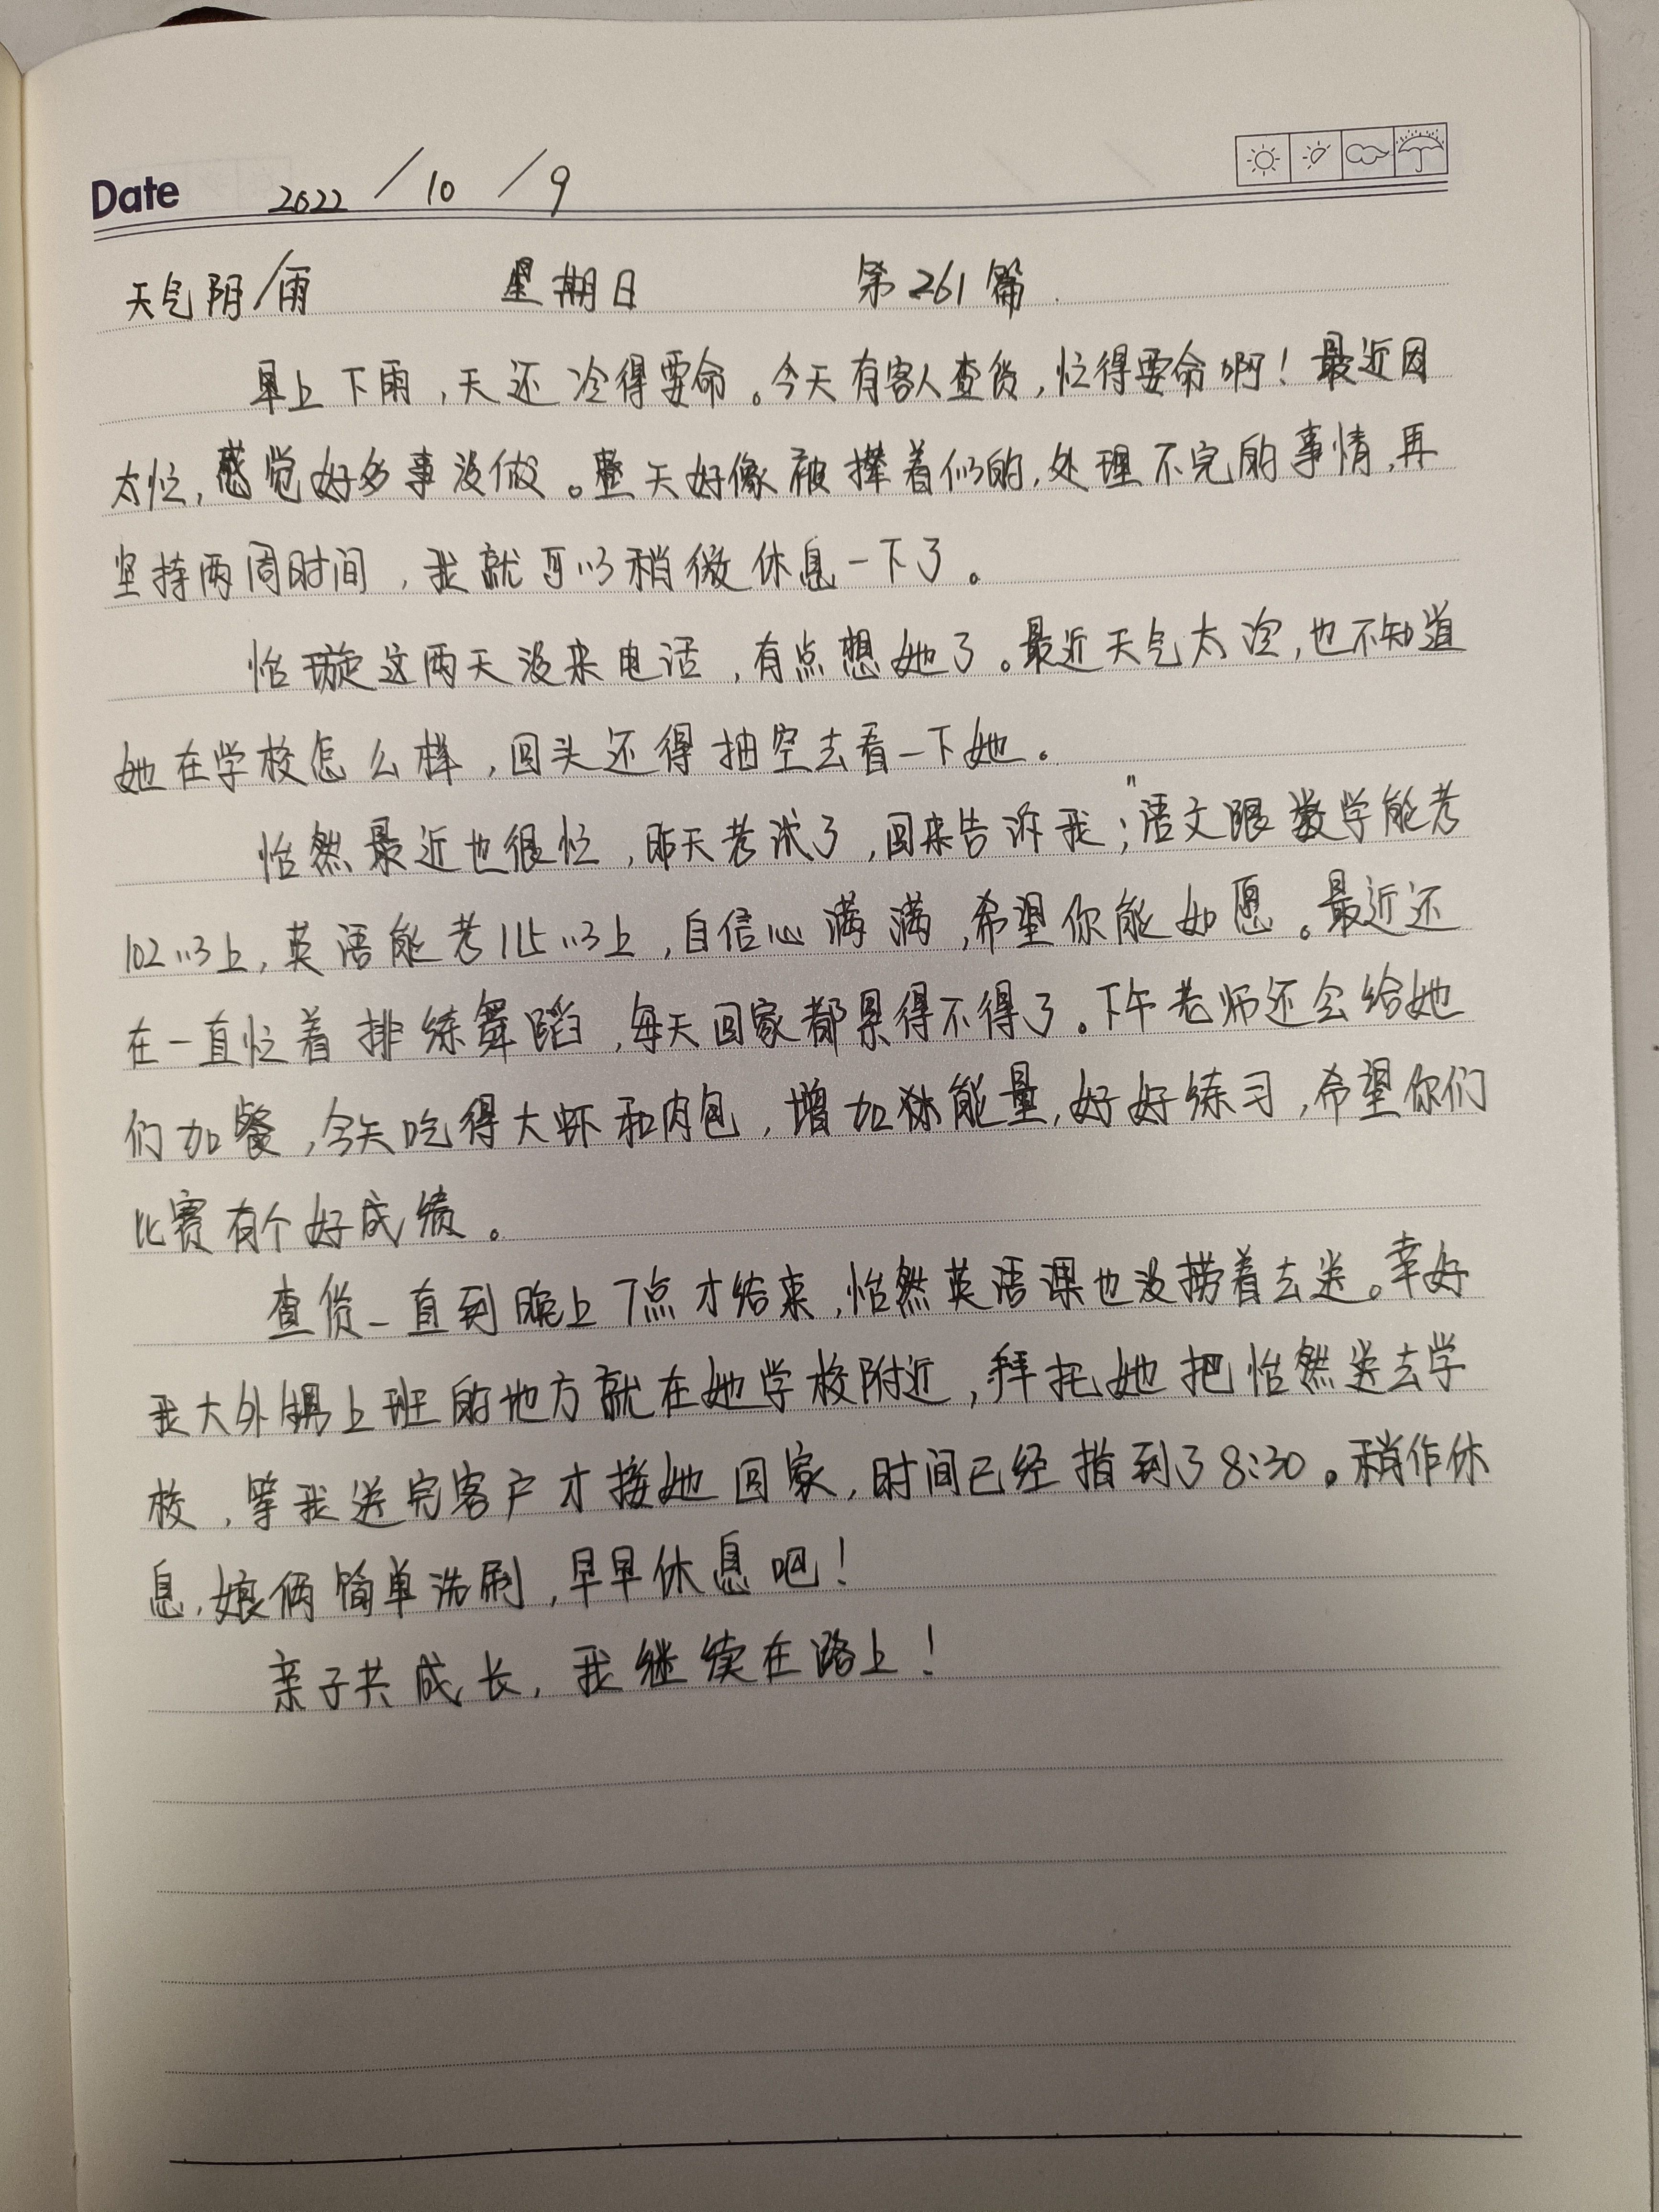 Date 2022/10/9
天气阴/雨 星期日 第261篇
早上下雨,天还冷得要命。今天有客人查货,忙得要命啊!最近因
太忙,感觉好多事没做。整天好像被撵着似的,处理不完的事情,再
坚持两周时间,我就可以稍微休息一下了。
怡璇这两天没来电话,有点想她了。最近天气太冷,也不知道
她在学校怎么样,回头还得抽空去看一下她。
怡然最近也很忙,昨天考试了,回来告诉我;"语文跟数学能考
102以上,英语能考115以上,自信心满满,希望你能如愿。最近还
在一直忙着排练舞蹈,每天回家都累得不得了。下午老师还会给她
们加餐,今天吃得大虾和肉包,增加能量,好好练习,希望你们
比赛有个好成绩。
查货一直到晚上7点才结束,怡然英语课也没捞着去送。幸好
我大外甥上班的地方就在她学校附近,拜托她把怡然送去学
校,等我送完客户才接她回家,时间已经指到了8:30。稍作休
息,娘俩简单洗刷,早早休息吧!
亲子共成长,我继续在路上!